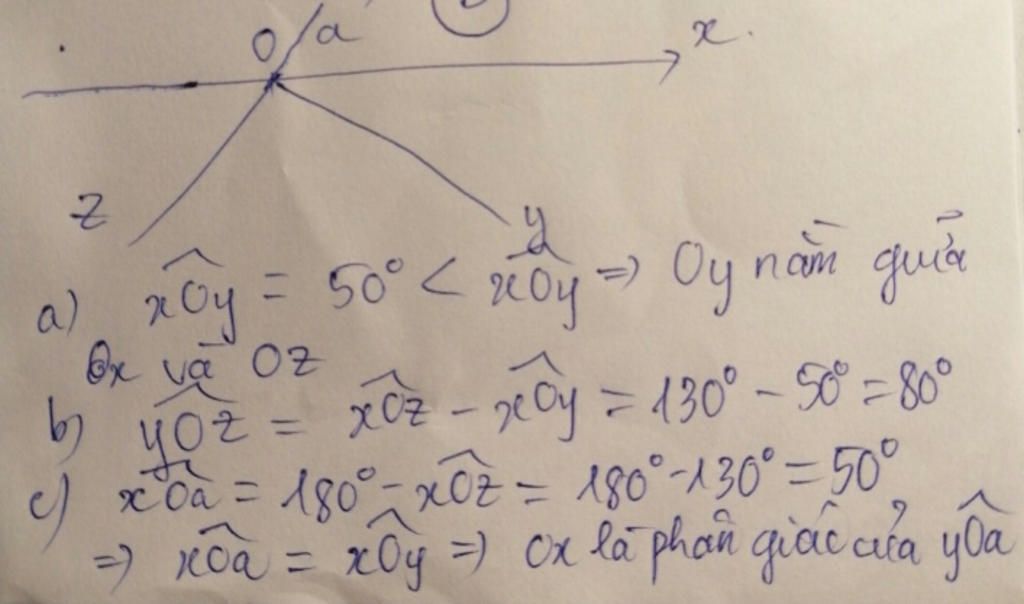 O a x.
z
y
a) xÔy = 50° < xÔy => Oy nằm giữa
Ox và Oz
b) yÔz = xÔz - xÔy = 130° - 50° = 80°
c) xÔa = 180° - xÔz = 180° - 130° = 50°
=> xÔa = xÔy => Ox là phân giác của yÔa